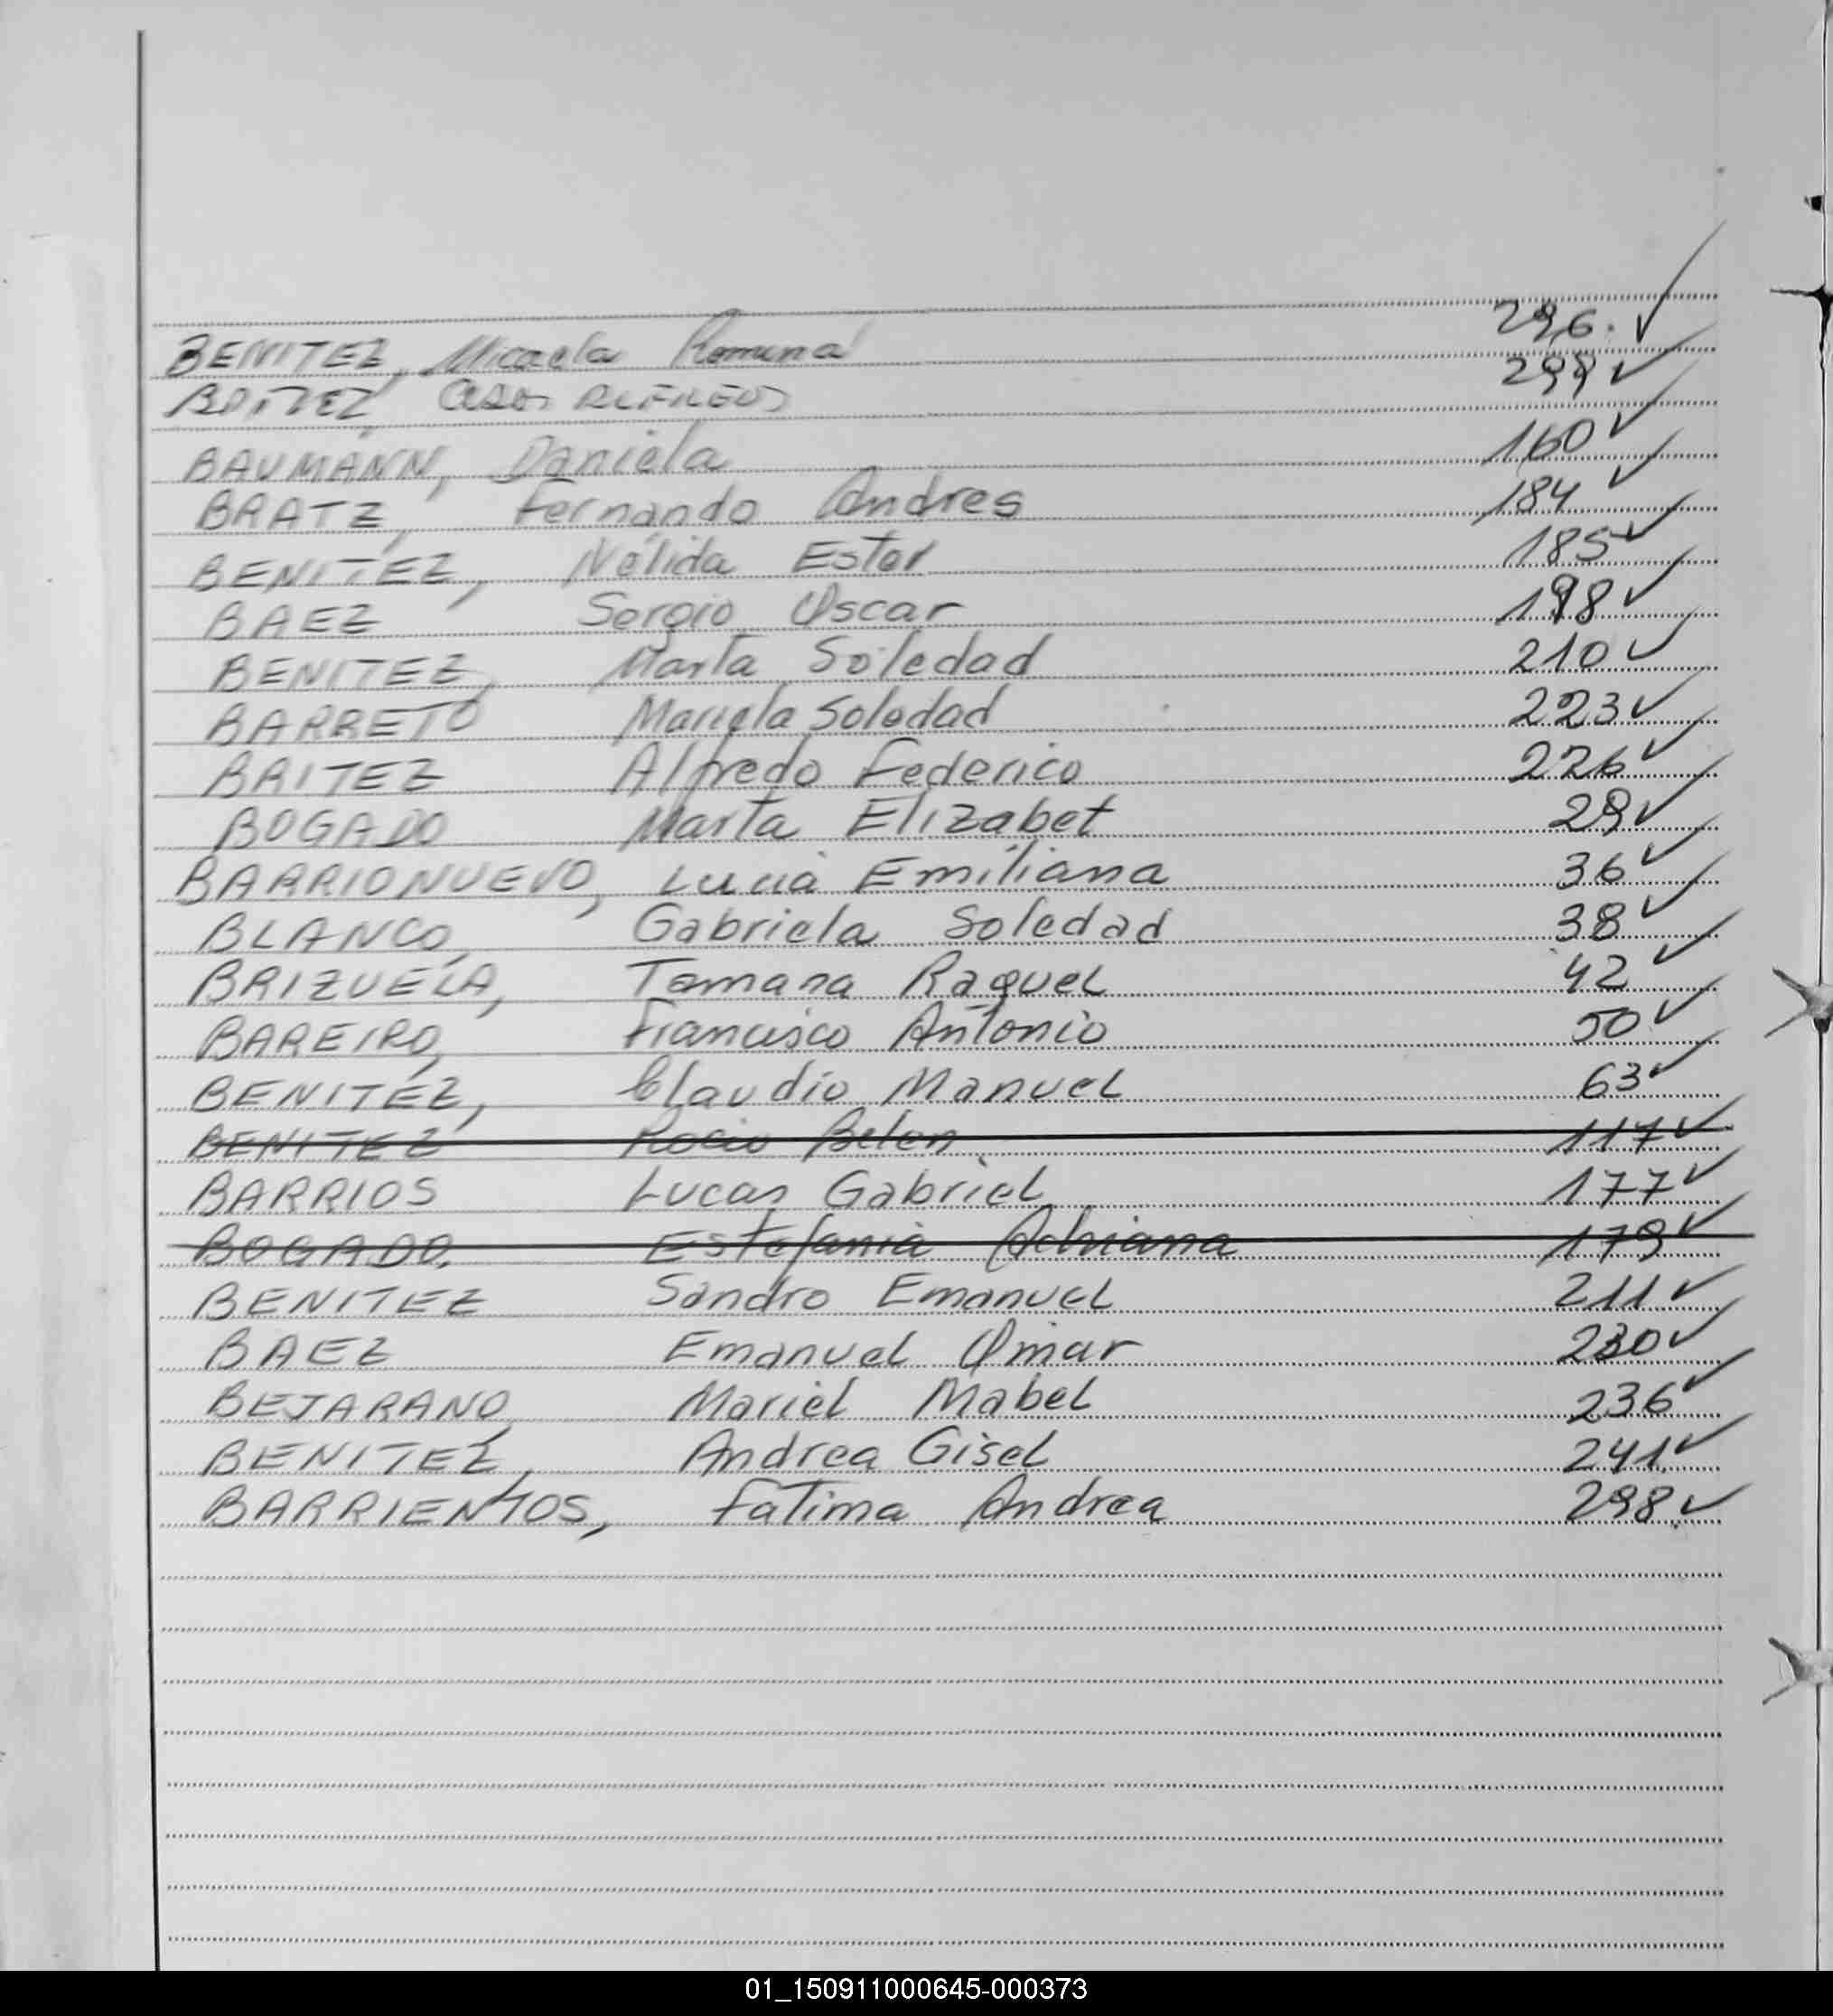 BENITEZ, Micaela Romina 296. ✓
BAITEZ 299 ✓
BAUMANN, Daniela 160 ✓
BRATZ, Fernando Andres 184 ✓
BENITEZ, Nélida Ester 185 ✓
BAEZ Sergio Oscar 198 ✓
BENITEZ, Marta Soledad 210 ✓
BARRETO Mariela Soledad 223 ✓
BAITEZ Alfredo Federico 226 ✓
BOGADO Marta Elizabet 29 ✓
BARRIONUEVO, Lucia Emiliana 36 ✓
BLANCO, Gabriela Soledad 38 ✓
BRIZUELA, Tamara Raquel 42 ✓
BAREIRO, Francisco Antonio 50 ✓
BENITEZ, Claudio Manuel 63 ✓
BENITEZ Rocio Belen 117 ✓
BARRIOS Lucas Gabriel 177 ✓
BOGADO, Estefania Adriana 179 ✓
BENITEZ Sandro Emanuel 211 ✓
BAEZ Emanuel Omar 230 ✓
BEJARANO, Mariel Mabel 236 ✓
BENITEZ, Andrea Gisel 241 ✓
BARRIENTOS, Fatima Andrea 298 ✓
01_150911000645-000373